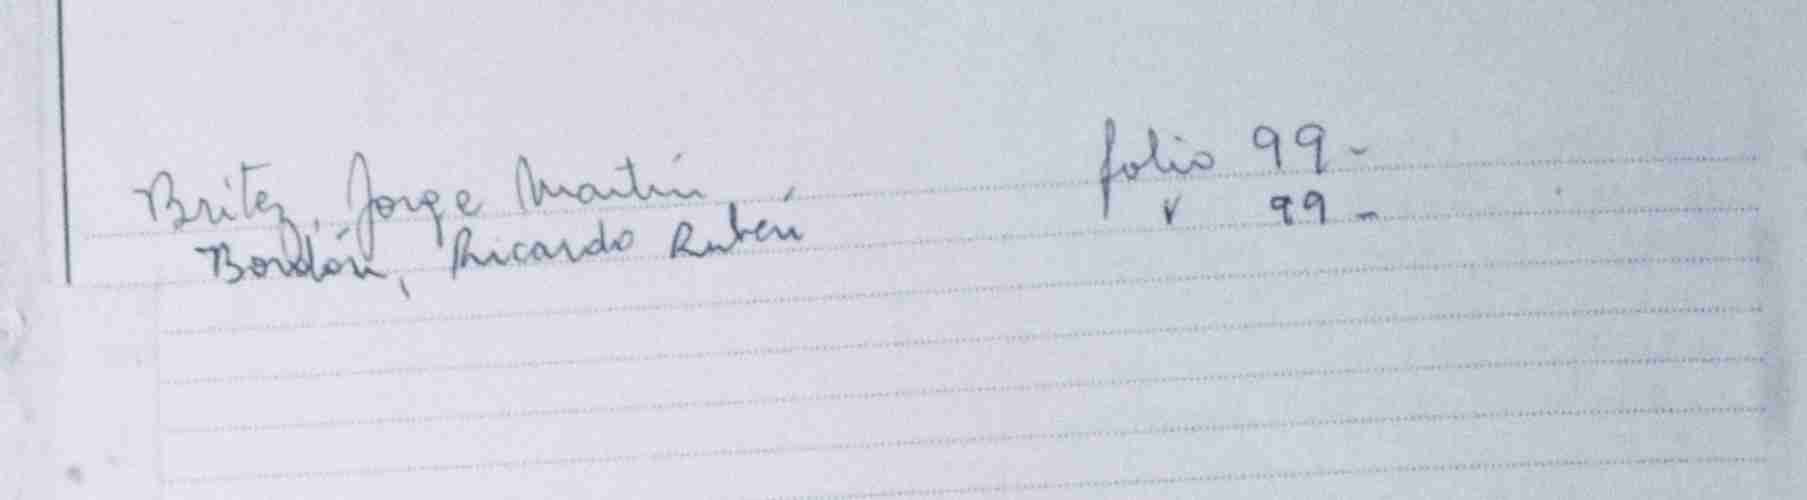 Britez, Jorge Martín folio 99-
Bordón, Ricardo Rubén v 99-